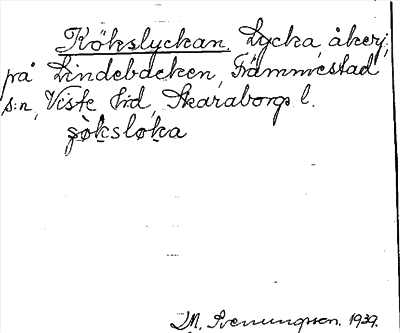 Kökslyckan. Lycka, åkerj.
på Lindebacken, Främmestad
s:n, Viste hd, Skaraborgs l.
ʂø̀ksløka
D.M. Svenungsson. 1939.